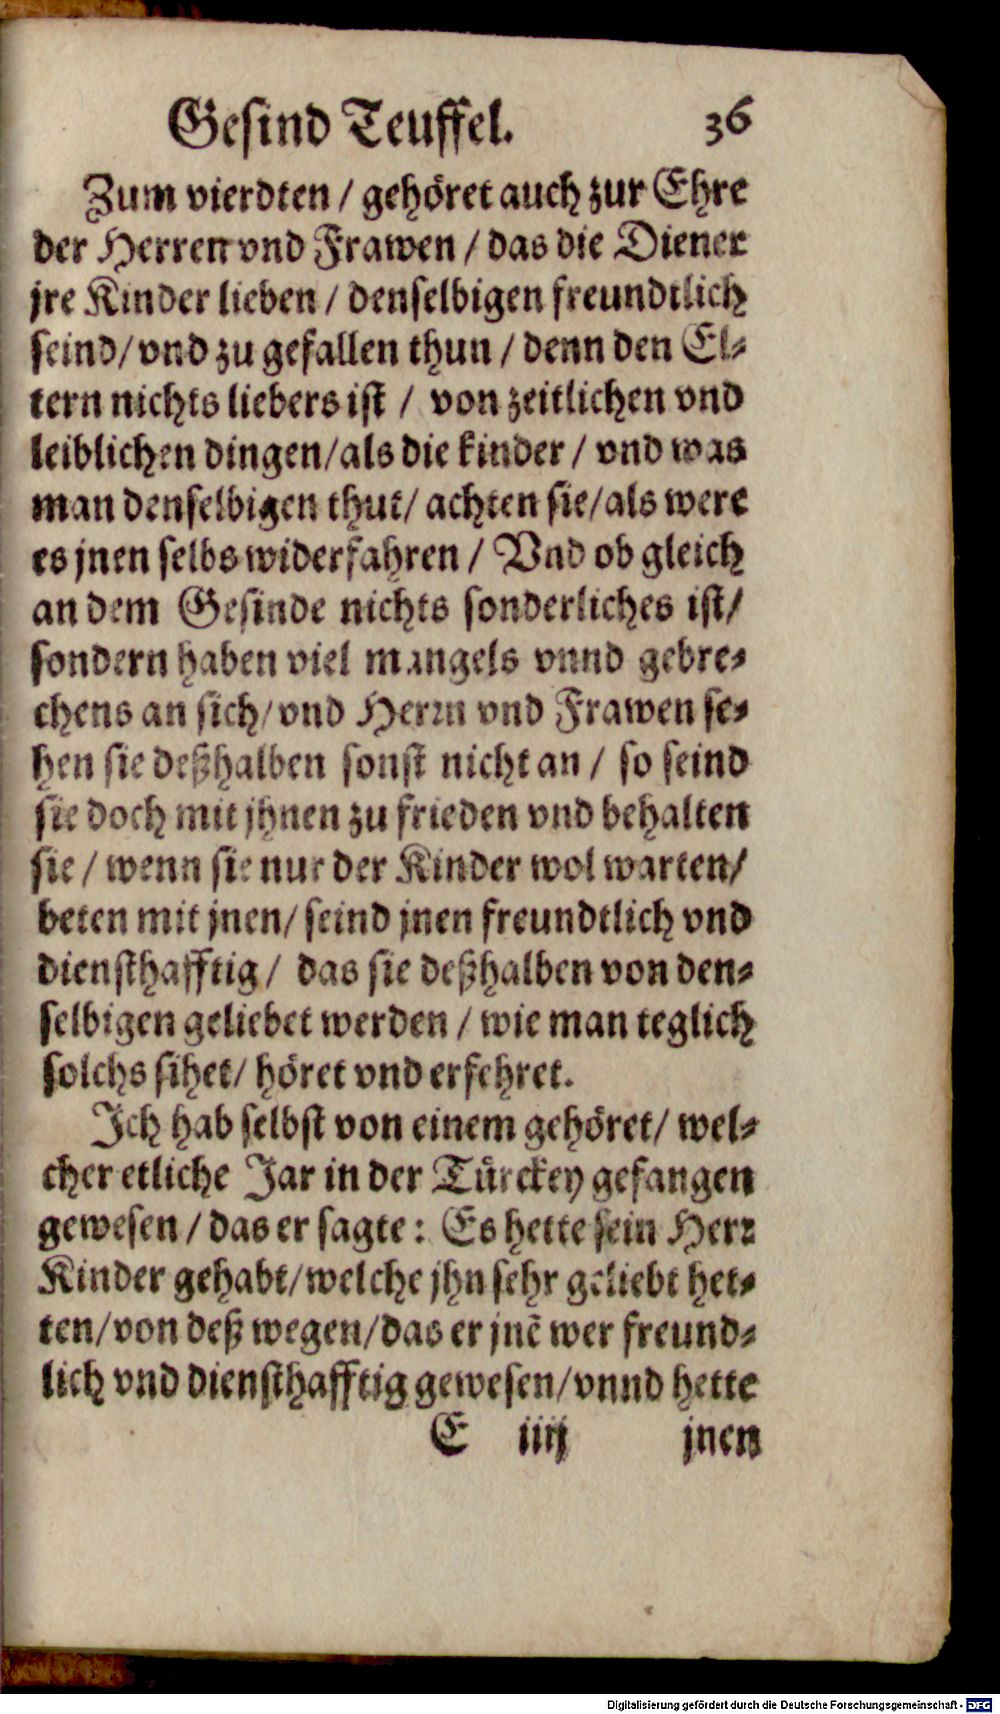 Gesind Teuffel. 36
Zum vierdten / gehöret auch zur Ehre
der Herren vnd Frawen / das die Diener
jre Kinder lieben / denselbigen freundtlich
seind/ vnd zu gefallen thun / denn den El⸗
tern nichts liebers ist / von zeitlichen vnd
leiblichen dingen/als die kinder / vnd was
man denselbigen thut/ achten sie/als were
es jnen selbs widerfahren / Vnd ob gleich
an dem Gesinde nichts sonderliches ist/
sondern haben viel mangels vnnd gebre⸗
chens an sich/ vnd Herrn vnd Frawen se⸗
hen sie deßhalben sonst nicht an / so seind
sie doch mit jhnen zu frieden vnd behalten
sie / wenn sie nur der Kinder wol warten/
beten mit jnen/ seind jnen freundtlich vnd
diensthafftig / das sie deßhalben von den⸗
selbigen geliebet werden / wie man teglich
solchs sihet/ höret vnd erfehret.
Ich hab selbst von einem gehöret/ wel⸗
cher etliche Jar in der Türckey gefangen
gewesen / das er sagte: Es hette sein Herr
Kinder gehabt/welche jhn sehr geliebt het⸗
ten/von deß wegen/das er jnē wer freund⸗
lich vnd diensthafftig gewesen/vnnd hette
E iiij jnen
Digitalisierung gefördert durch die Deutsche Forschungsgemeinschaft - DFG